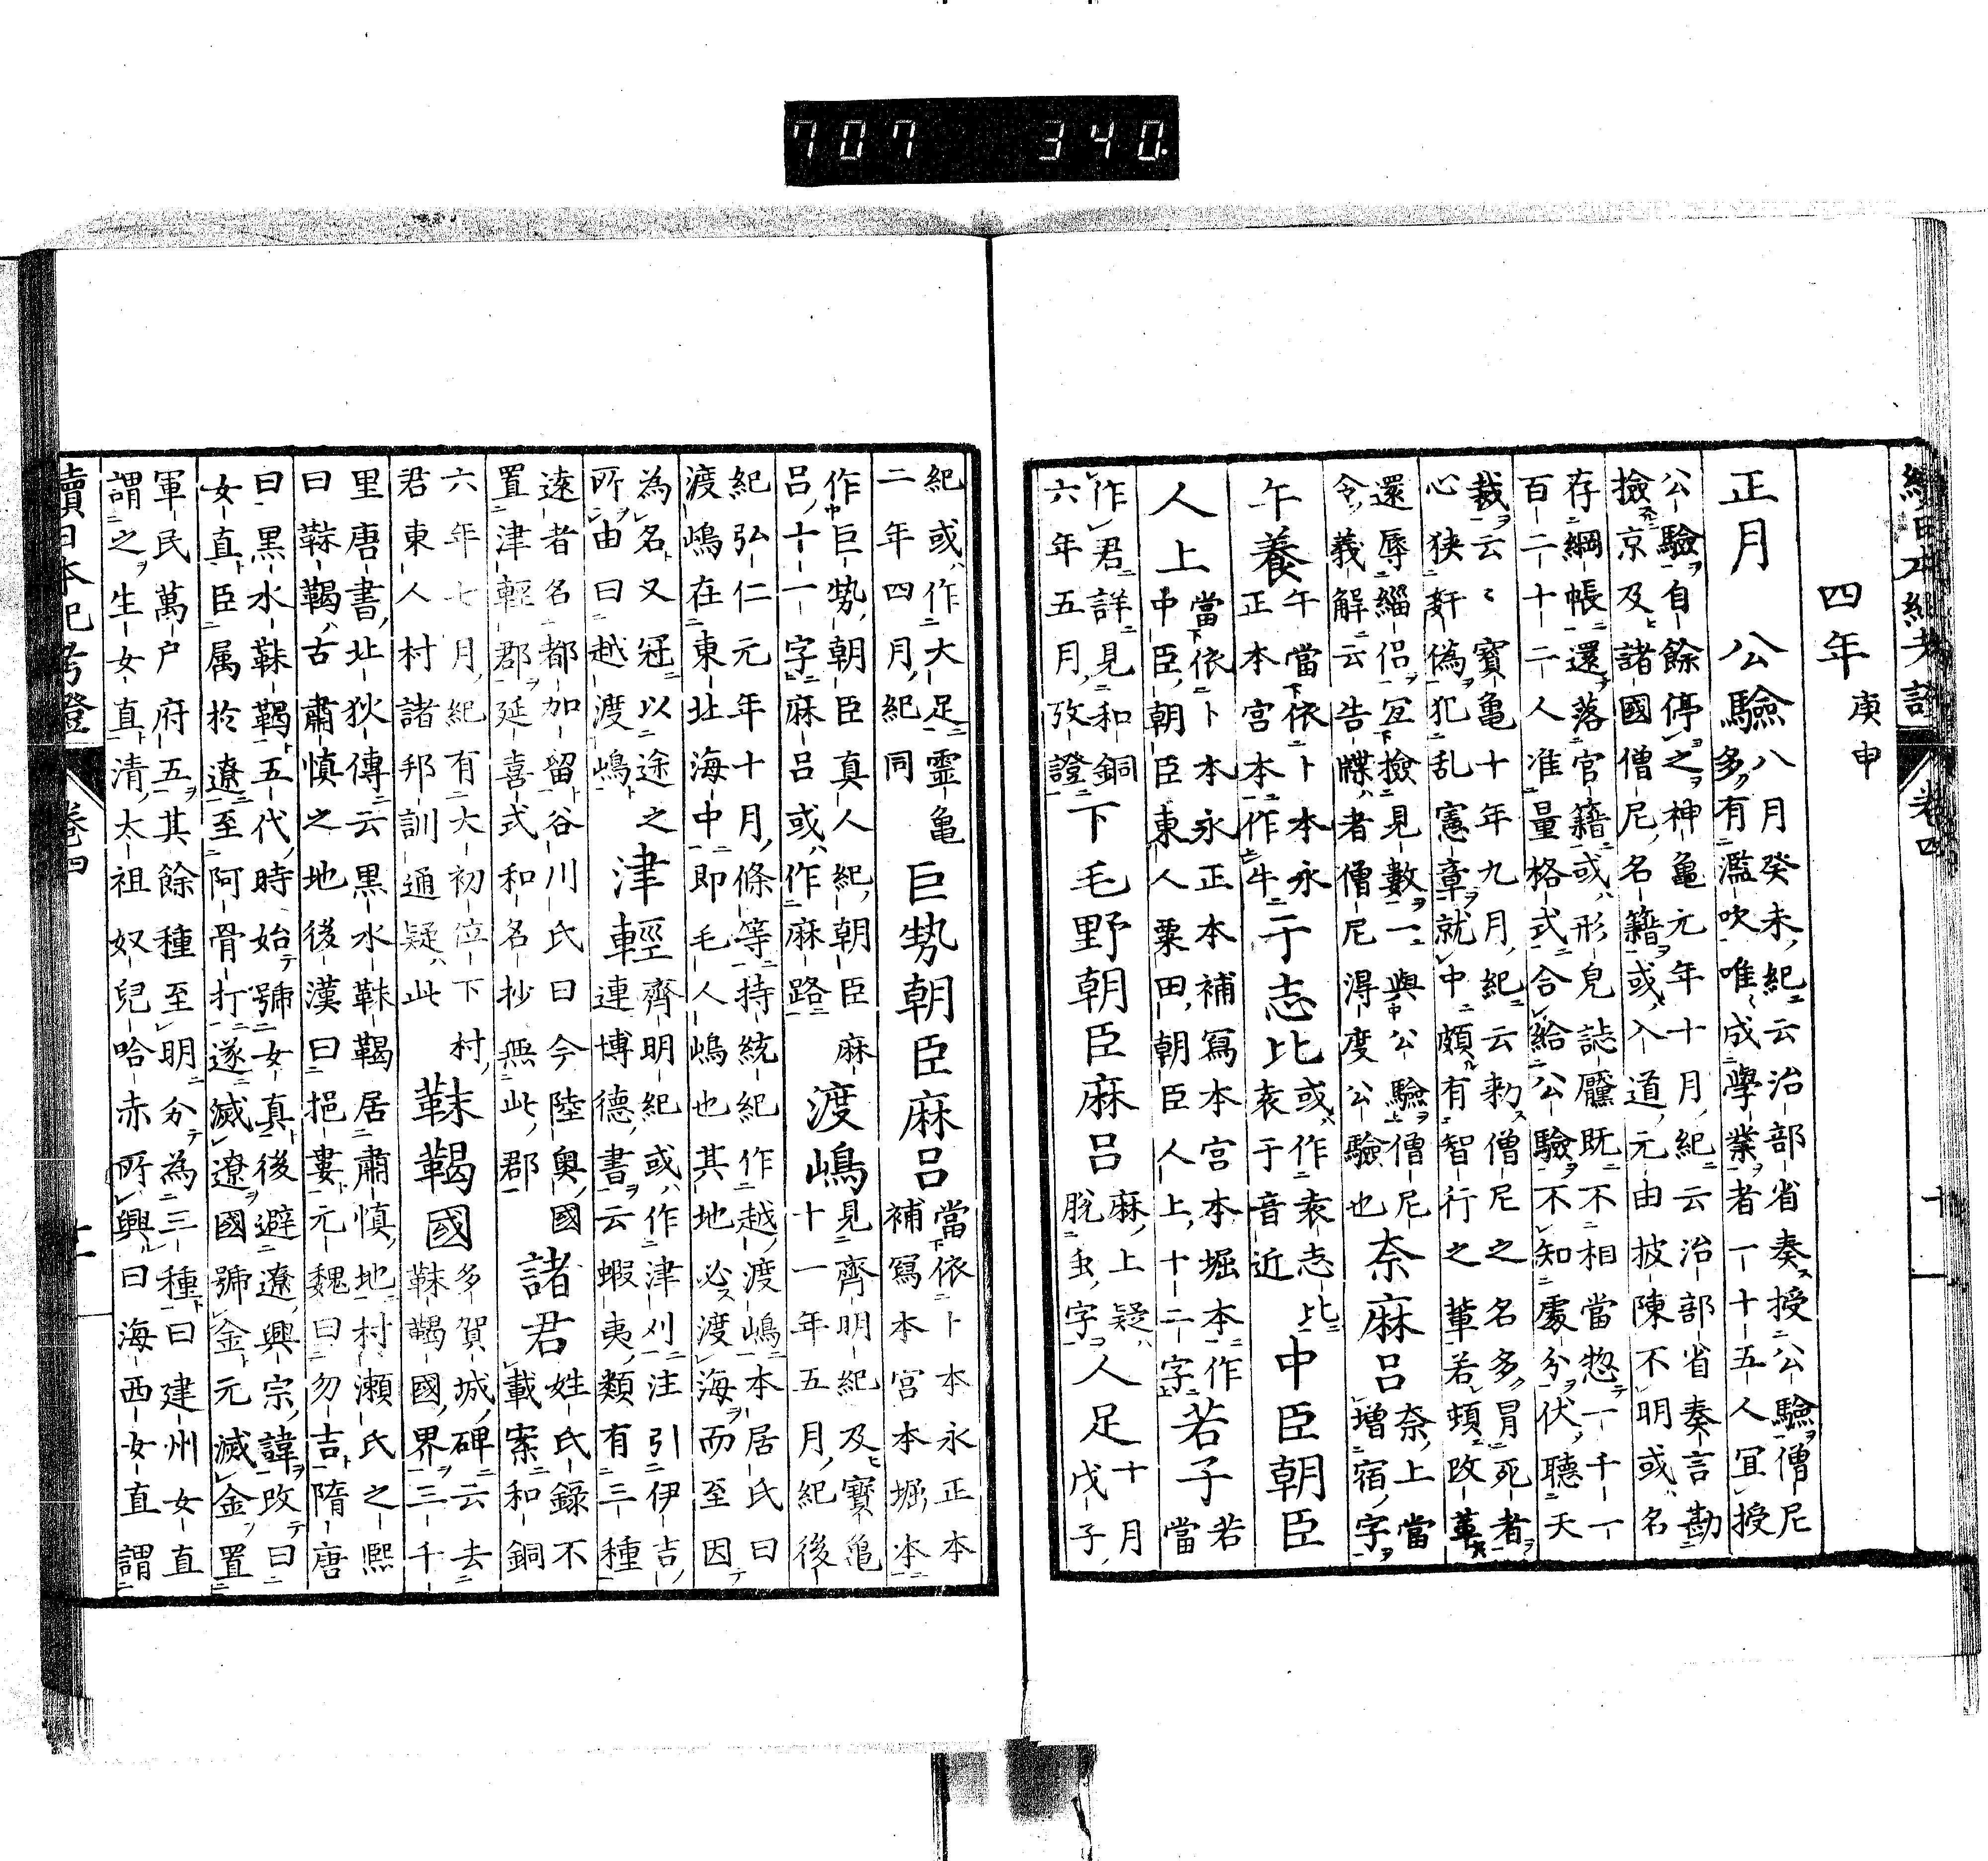 707 340
續日本紀考證 卷四 十
四年 庚申
正月 公驗 八月癸未紀云治部省奏授公驗僧尼
多有濫吹唯成學業者一十五人冝授
公驗自餘停之神亀元年十月紀云治部省奏言勘
撿京及諸國僧尼名籍或入道元由披陳不明或名
存綱帳還落官籍或形皃誌黶既不相當惣一千一
百二十二人准量格式合給公驗不知處分伏聽天
裁云〻寶亀十年九月紀云勅僧尼之名多冒死者
心挾姧偽犯乱憲章就中頗有智行之輩若頓改革
還辱緇侶冝撿見數一與公驗僧尼
令義解云告牒者僧尼得度公驗也
奈麻呂 奈上當
増宿字
午養 午當依卜本永
正本宮本作牛
于志比 或作袁志比
袁于音近
中臣朝臣
人上 當依卜本永正本補寫本宮本堀本作
中臣朝臣東人粟田朝臣人上十二字
若子 若當
作君詳見和銅
六年五月攷證
下毛野朝臣麻呂 麻上疑
脱虫字
人足 十月
戊子
紀或作大足靈亀
二年四月紀同
巨勢朝臣麻呂 當依卜本永正本
補寫本宮本堀本
作巨勢朝臣真人紀朝臣麻
呂十一字麻呂或作麻路
渡嶋 見齊明紀及寶亀
十一年五月紀後
紀弘仁元年十月條等持統紀作越渡嶋本居氏曰
渡嶋在東北海中即毛人嶋也其地必渡海而至因
為名又冠以途之
所由曰越渡嶋
津輕 齊明紀或作津刈注引伊吉
連博德書云蝦夷類有三種
遠者名都加留谷川氏曰今陸奧國
置津輕郡延喜式和名抄無此郡
諸君 姓氏錄不
載案和銅
六年七月紀有大初位下
君東人村諸邦訓通疑此
村
靺鞨國 多賀城碑云去
靺鞨國界三千
里唐書北狄傳云黑水靺鞨居肅慎地村瀬氏之熙
曰靺鞨古肅慎之地後漢曰挹婁元魏曰勿吉隋唐
曰黑水靺鞨五代時始號女真後避遼興宗諱改曰
女直臣属於遼至阿骨打遂滅遼國號金元滅金置
軍民萬户府五其餘種至明分為三種曰建州女直
謂之生女直清太祖奴兒哈赤所興曰海西女直謂
續日本紀考證 卷四